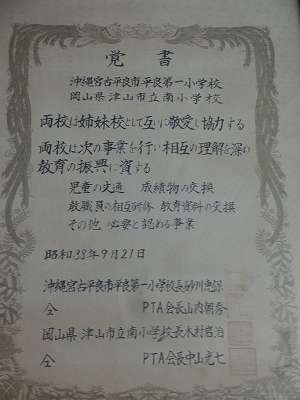 覚書
沖縄宮古平良市平良第一小学校
岡山県津山市立南小学校
両校は姉妹校として互いに敬愛し協力する
両校は次の事業を行い相互の理解を深め
教育の振興に資する
児童の文通 成績物の交換
教職員の相互研修 教育資料の交換
その他必要と認める事業
昭和38年9月21日
沖縄宮古平良市平良第一小学校長砂川恵保
仝 PTA会長山内朝秀
岡山県津山市立南小学校長木村岩治
仝 PTA会長中山光七